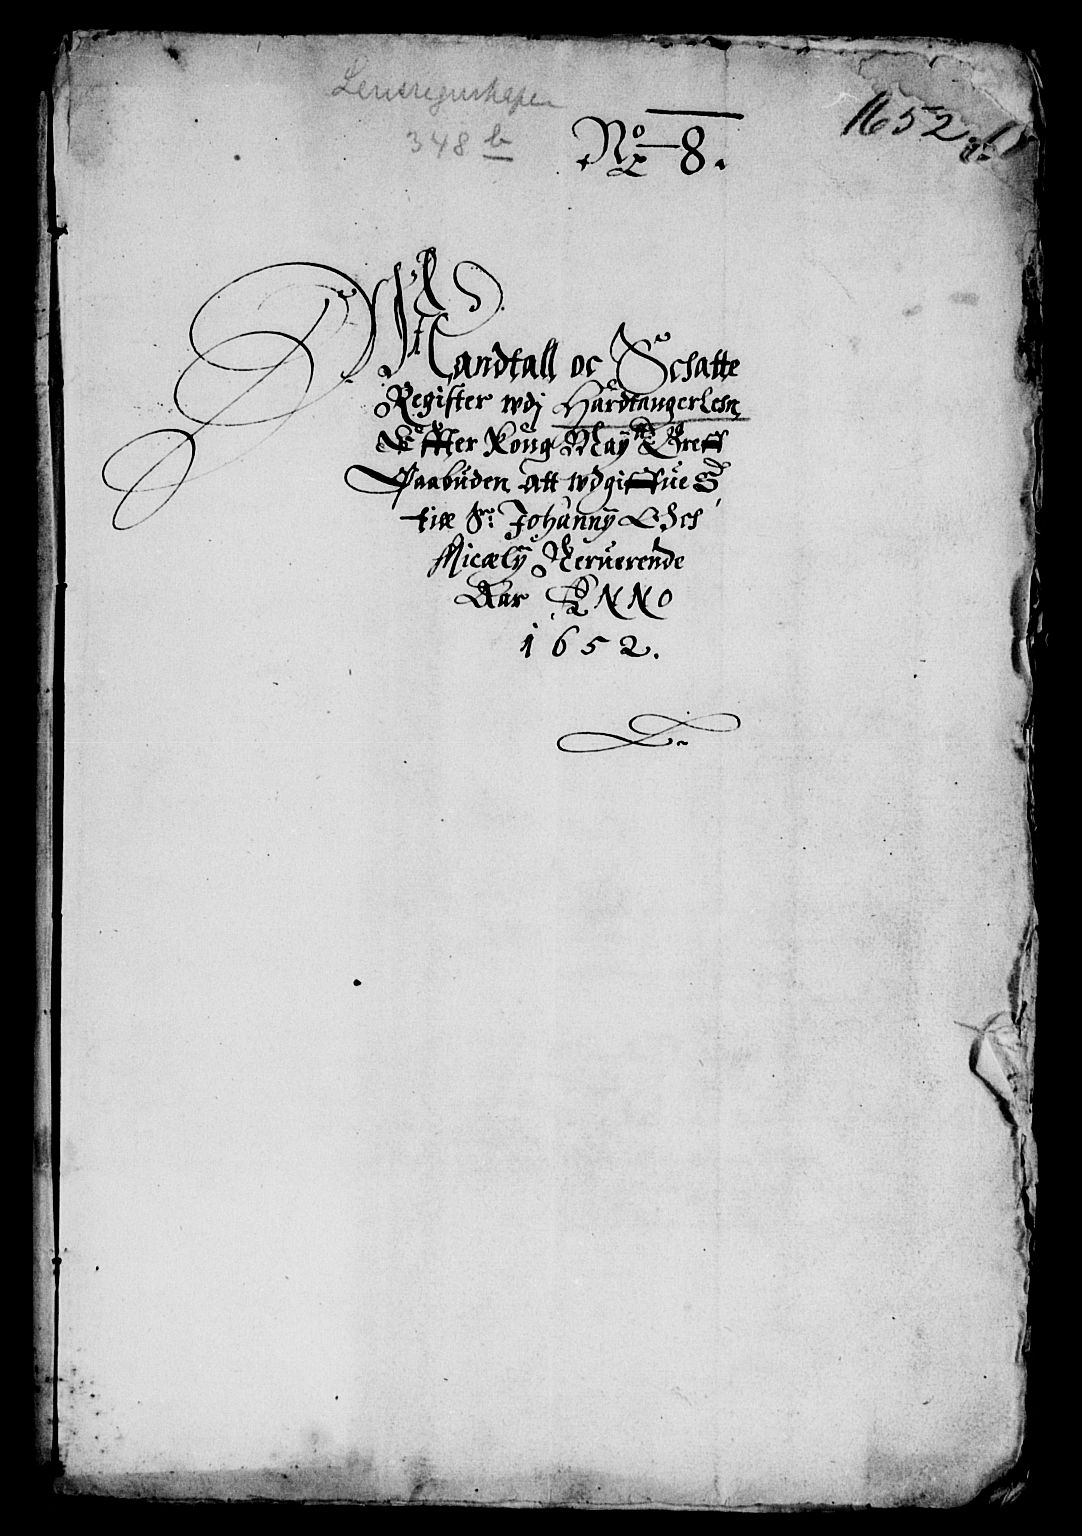 Lensregnskaper
348 b
1652
No 8.
Mandtall oc Schatte
Register wdj Hardtangerlehn
Effter Kong May: tt Breffs
Paabuden att wdgiffue S
till Sr: Johanny Och
Micæly Neruerende
Aar ANNO
1652.